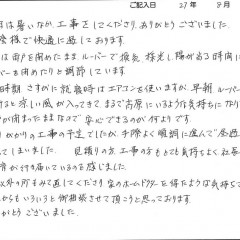 ご記入日 27年 8月
は暑いなか、工事をしてくださり、ありがとうございました。
皆様で快適に過しております。
は雨戸を閉めたまま ルーバーで換気、採光し陽が当る時間に
ーを閉めたりと調節しています
時期、さすがに就寝時はエアコンを使いますが、早朝 ルーバー
けると涼しい風が入ってきて、まるで高原にいるような気持ちになり
が閉まったままなので安心できるのが何よりです
がかりの工事の予定でしたが、手際よく順調に進んで
てしまいました。 見積りの方、工事の方もとても気持ちよく、社長
が行き届いているのを感じました。
以外の所もみて直してくださり 家のホームドクターを得たような気持ち
からもいろいろと御相談させて頂こうと思っております。
がとうございました。